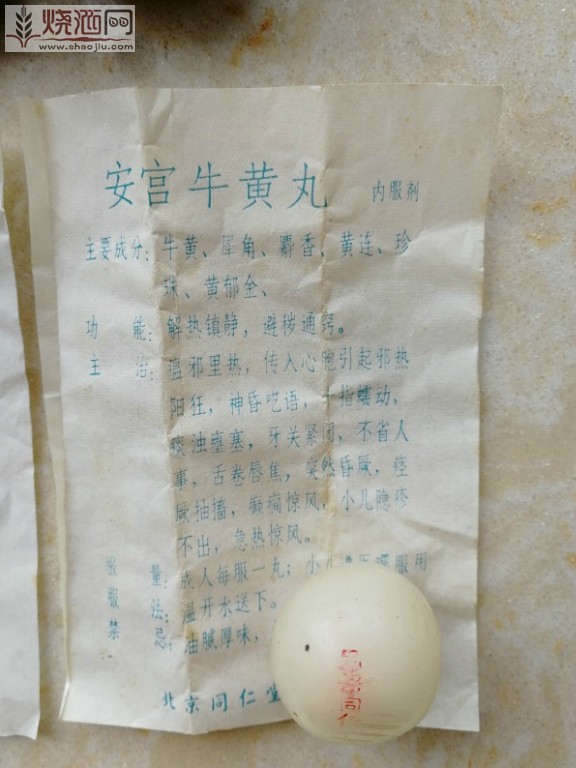 烧酒网
www.shaojiu.com
安宫牛黄丸 内服剂
主要成分：牛黄、犀角、麝香、黄连、珍
珠、黄郁金、
功 能：解热镇静，避秽通窍。
主 治：瘟邪里热，传入心胞引起邪热
阳狂，神昏呓语，十指蠕动，
痰浊壅塞，牙关紧闭，不省人
事，舌卷唇焦，突然昏厥，痉
厥抽搐，癫痫惊风，小儿隐疹
不出，急热惊风。
服 量：成人每服一丸；小儿 服用
服 法：温开水送下。
禁 忌：油腻厚味，
北京同仁堂